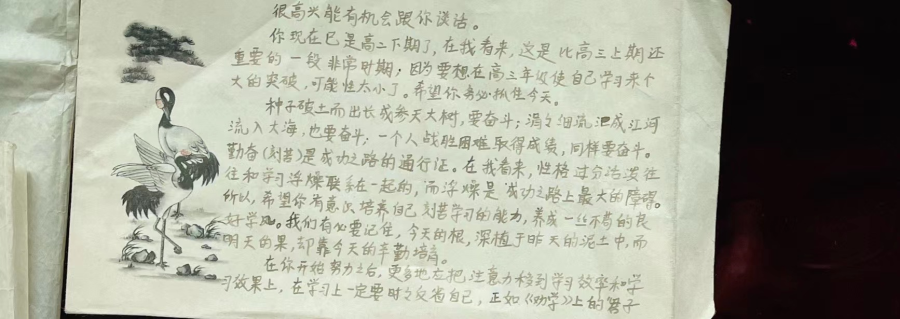 很高兴能有机会跟你谈话。
你现在已是高二下期了，在我看来，这是比高三上期还
重要的一段非常时期；因为要想在高三年级使自己学习来个
大的突破，可能性太小了。希望你务必抓住今天。
种子破土而出长成参天大树，要奋斗；涓涓细流汇成江河
流入大海，也要奋斗；一个人战胜困难取得成就，同样要奋斗。
勤奋(刻苦)是成功之路的通行证。在我看来，性格过分活泼往
往和学习浮燥联系在一起的，而浮燥是成功之路上最大的障碍。
所以，希望你有意识培养自己刻苦学习的能力，养成一丝不苟的良
好学风。我们有必要记住，今天的根，深植于昨天的泥土中，而
明天的果，却靠今天的辛勤培育。
在你开始努力之后，更多地去把注意力移到学习效率和学
习效果上，在学习上一定要时时反省自己，正如《劝学》上的君子